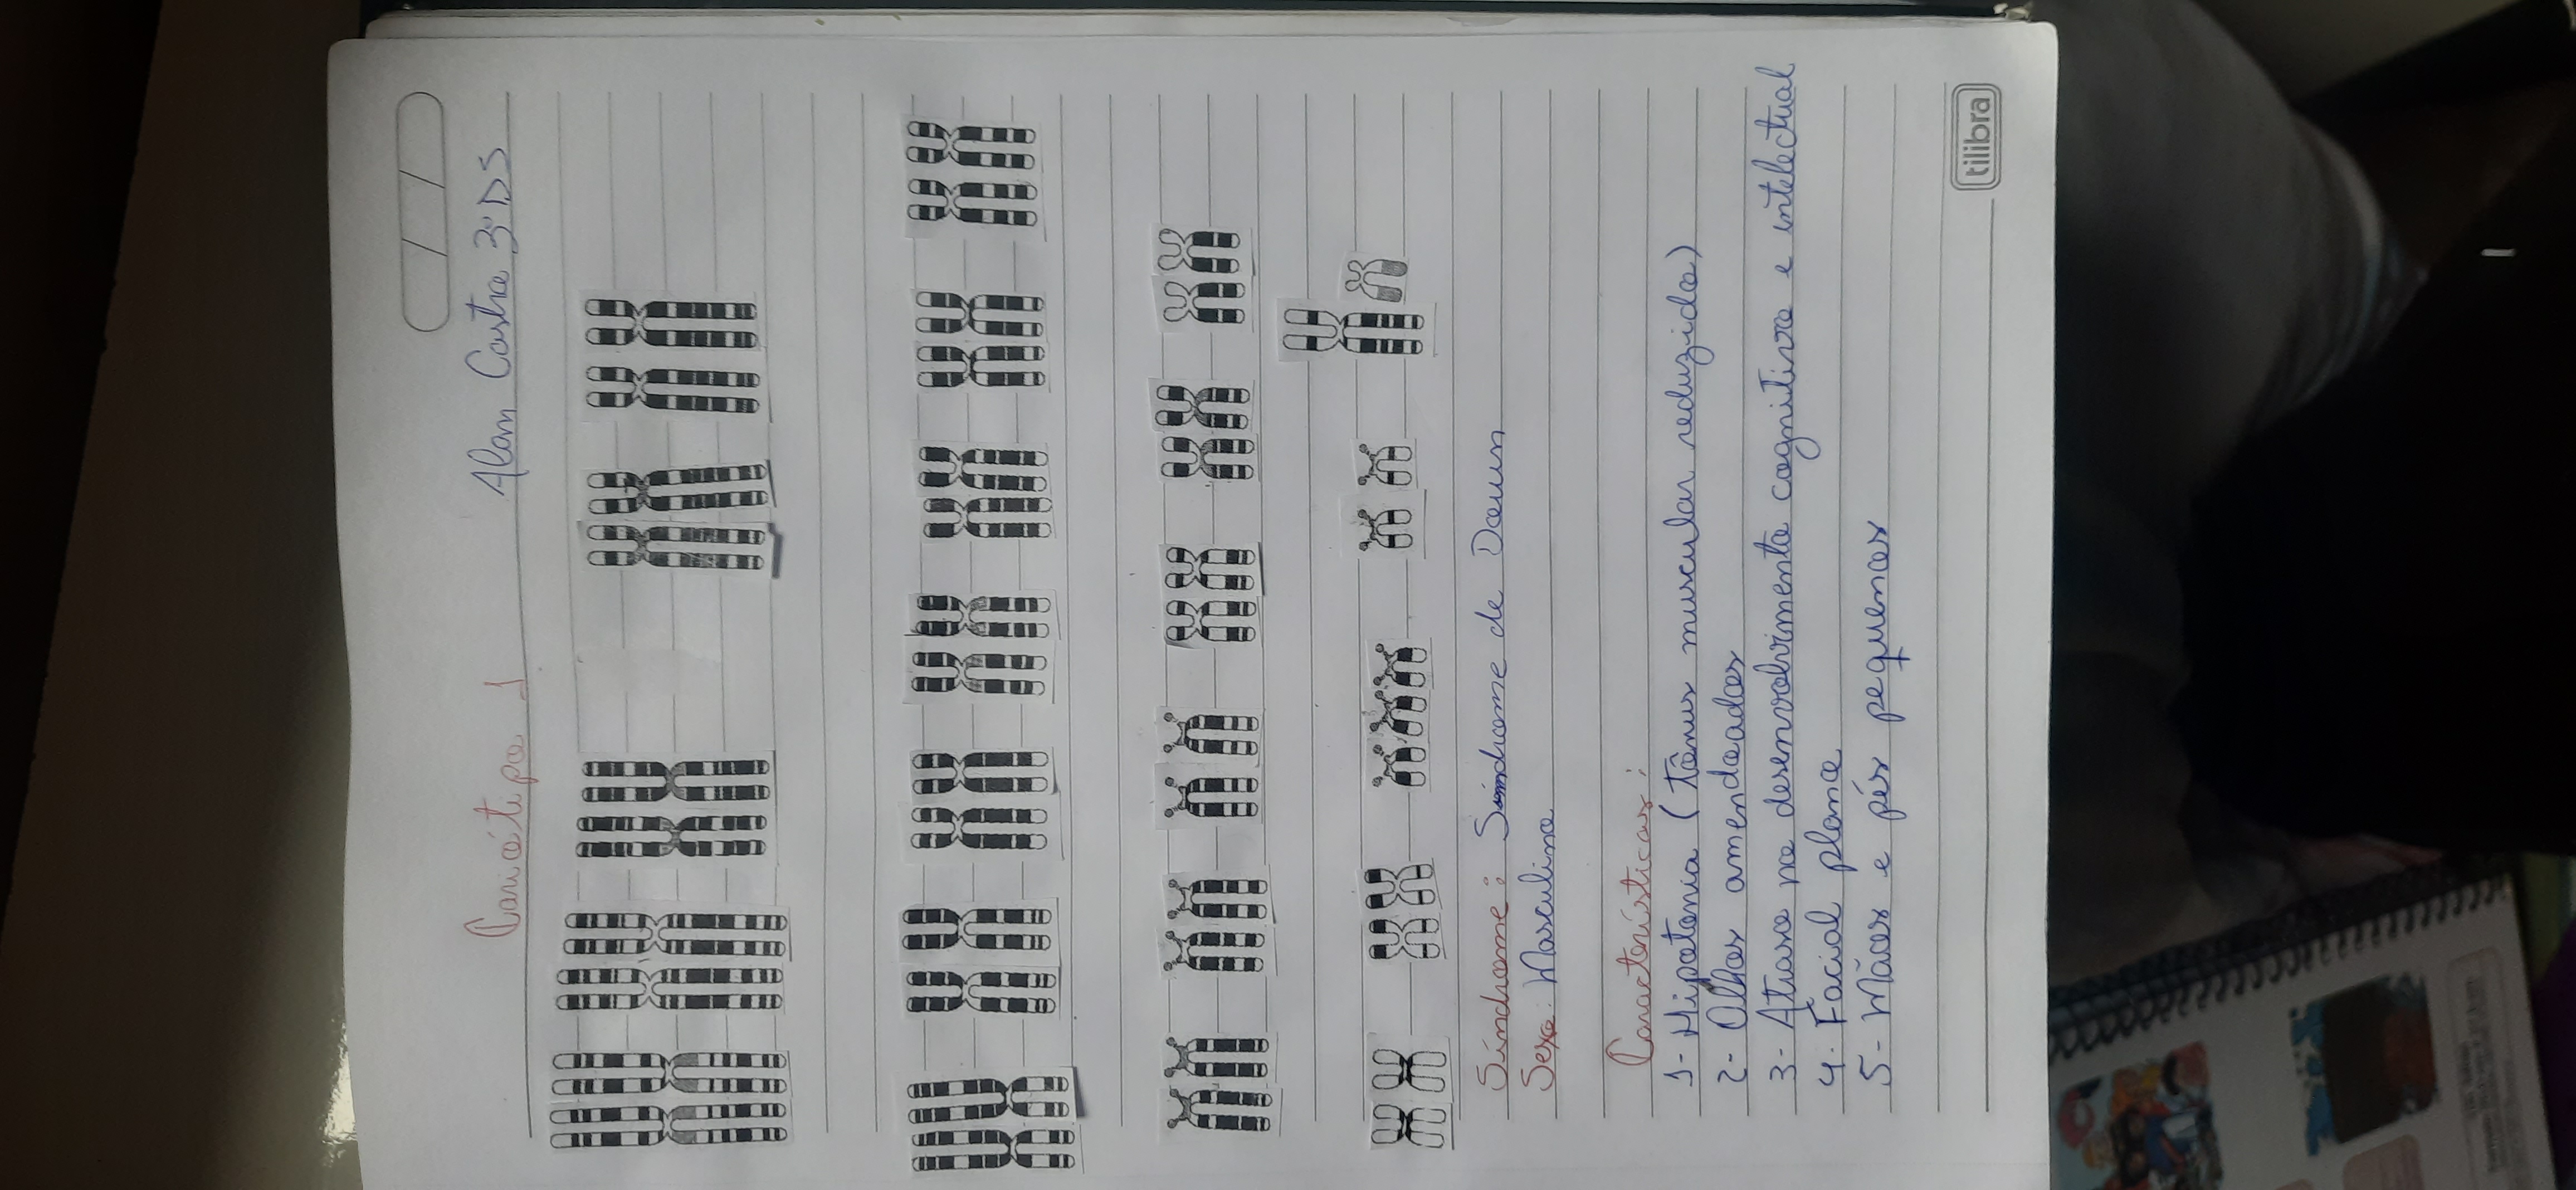 Cariótipo 1
Alan Castro 3º DS
Síndrome: Síndrome de Down
Sexo: Masculino
Características:
1- Hipotonia (tônus muscular reduzido)
2- Olhos amendoados
3- Atraso no desenvolvimento cognitivo e intelectual
4- Facial plano
5- Mãos e pés pequenos
tilibra